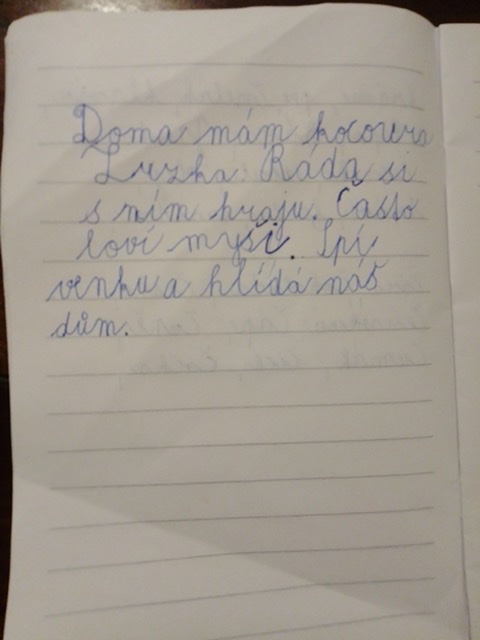 Doma mám kocoura
Lízka. Ráda si
s ním hraju. Často
loví myši. Spí
venku a hlídá náš
dům.